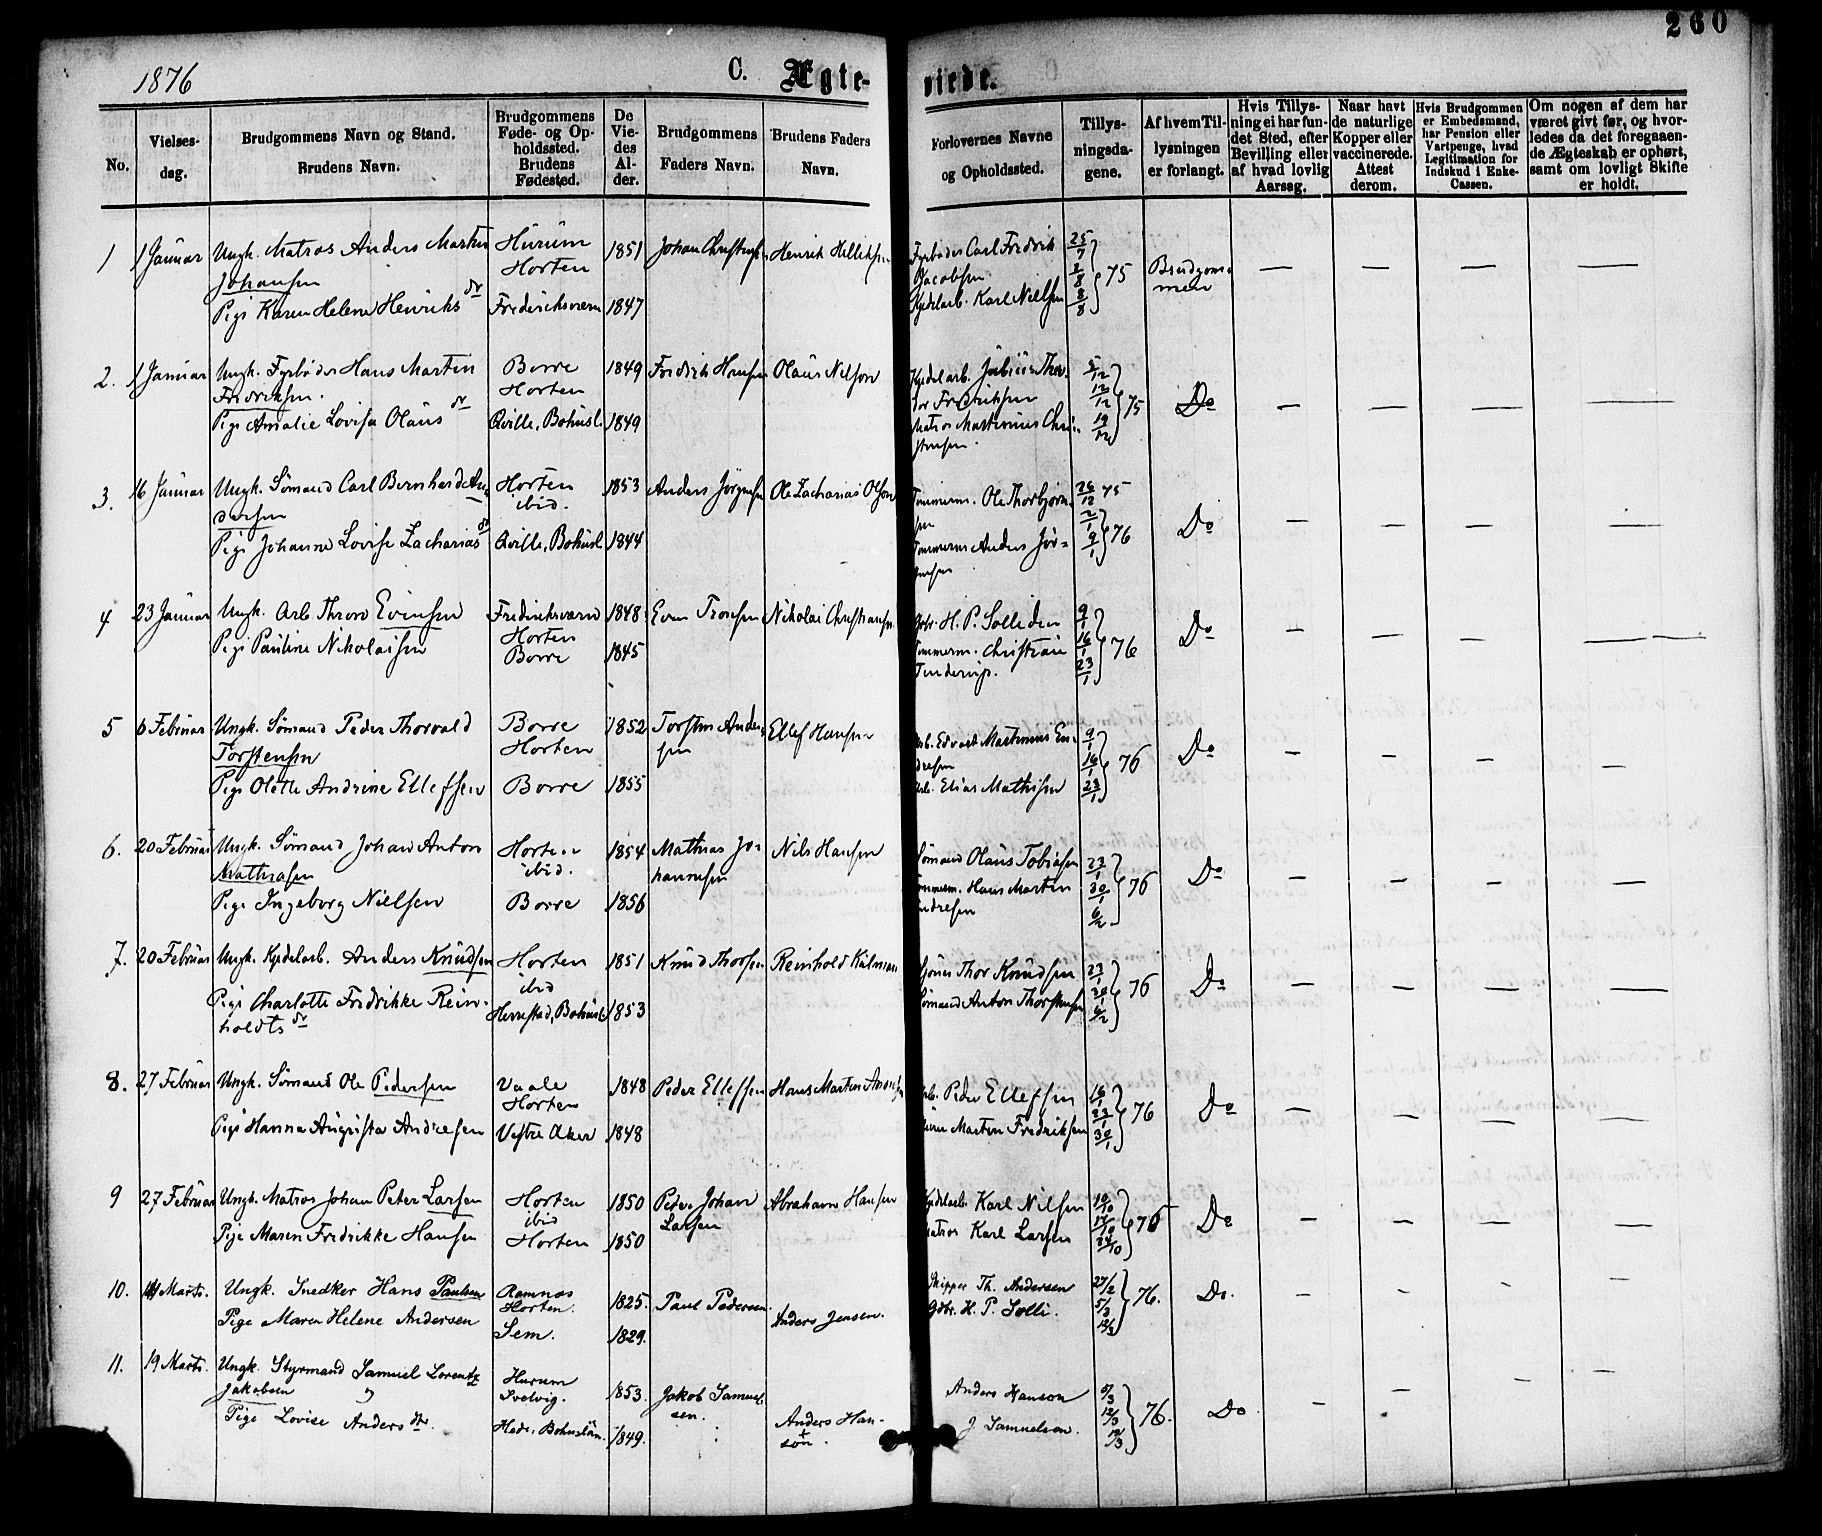 260
1876
C. Ægte-
viede.
No.
Vielses-
dag.
Brudgommens Navn og Stand.
Brudens Navn.
Brudgommens
Føde- og Op-
holdssted.
Brudens
Fødested.
De
Vie-
des
Al-
der.
Brudgommens
Faders Navn.
Brudens Faders
Navn.
Forlovernes Navne
og Opholdssted.
Tillys-
ningsda-
gene.
Af hvem Til-
lysningen
er forlangt.
Hvis Tillys-
ning ei har fun-
det Sted, efter
Bevilling eller
af hvad lovlig
Aarsag.
Naar havt
de naturlige
Kopper eller
vaccinerede.
Attest
derom.
Hvis Brudgommen
er Embedsmand,
har Pension eller
Vartpenge, hvad
Legitimation for
Indskud i Enke-
Cassen.
Om nogen af dem har
været givt før, og hvor-
ledes da det foregaaen-
de Ægteskab er ophørt,
samt om lovligt Skifte
er holdt.
1 1 Januar Ungk. Matros Anders Martin Hurum 1851 Henrik
Johansen Horten
Pige Karen Helene Henriks dr Frederiksværn 1847
Fyrbøder Carl Fredrik 25/7
Jacobsen 2/8 75 Brudgom-
men
Kjedelarb. Karl Nielsen 8/8
2. 1 Januar Ungk. Fyrbøder Hans Martin Borre 1849 Fredrik Hansen Olaus Nilson
Fredriksen. Horten
Pige Amalie Lovisa Olaus dr Qville, Bohusl. 1849
Kjedelarb. 5/12
Fredriksen 12/12 75 Do
Matros Martinius Chri- 19/12
stensen.
3. 16 Januar Ungk. Sømand Carl Bernhard An- Horten 1853 Anders Jørgensen Ole Zacharias Olson
dersen ibid.
Pige Johanne Lovise Zacharias dr Qville, Bohusl 1844
Tømmerm. Ole Thorbjørn- 26/12 75
sen 2/1 76 Do
Tømmerm Anders Jør- 9/1
gensen
4 23 Januar Ungk. Arb. Thron Evensen Fredriksværn 1848 Even Tronsen Nikolai Christiansen
Horten
Pige Pauline Nikolaisen Borre 1845
H. P. Solli den 9/1
Tømmerm. Christian 16/1 76 Do
Tenderup. 23/1
5 6 Februar Ungk. Sømand Peder Thorvald Borre 1852 Torsten Ander- Ellef Hansen
Torstensen Horten sen
Pige Olette Andrine Ellefsen Borre 1855
Arb. Edvart Martinius En- 9/1
dresen 16/1 76 Do
Arb. Elias Mathisen 23/1
6. 20 Februar Ungk. Sømand Johan Anton Horten 1854 Mathias Jo- Nils Hansen
Mathiasen ibid. hannesen
Pige Ingeborg Nielsen Borre 1856
Sømand Olaus Tobiasen 23/1
Tømmerm. Hans Martin 30/1 76 Do
Andresen 6/2
7. 20 Februar Ungk. Kjedelarb. Anders Knudsen Horten 1851 Knud Thorsen Reinhold
ibid
Pige Charlotte Fredrikke Rein- Herrestad, Bohusl 1853
holdts dr
Thor Knudsen 23/1
Sømand Anton Thorstensen 30/1 76 Do
6/2
8. 27 Februar Ungk. Sømand Ole Pedersen Vaale 1848 Peder Ellefsen Hans Martin Andresen
Horten
Pige Hanna Augusta Andresen Vestre Aker 1848
Arb. Peder Ellefsen 16/1
Martin Fredriksen 23/1 76 Do
30/1
9 27 Februar Ungk. Matros Johan Peter Larsen Horten 1850 Peder Johan Abraham Hansen
ibid Larsen
Pige Maren Fredrikke Hansen Horten 1850
Kjedelarb. Karl Nilsen 10/10
Matros Karl Larsen 17/10 Do
24/10
10. Marts. Ungk. Snedker Hans Paulsen Ramnæs 1825. Paul Pedersen.
Horten.
Pige Maren Helene Andersen Sem. 1829. Anders Jensen.
Skipper Th. Andersen 27/2
Gdbr. H. P. Solli. 5/3 76. Do.
12/3
11. 19 Marts. Ungk. Styrmand Samuel Lorentz Hurum 1853. Jakob Samuel-
Jakobsen Svelvig. sen.
Pige Lovise Anders dtr. Hede, Bohuslän. 1849. Anders Han-
son.
Anders Hanson 5/3
J. Samuelsen. 12/3 76. Do
19/3